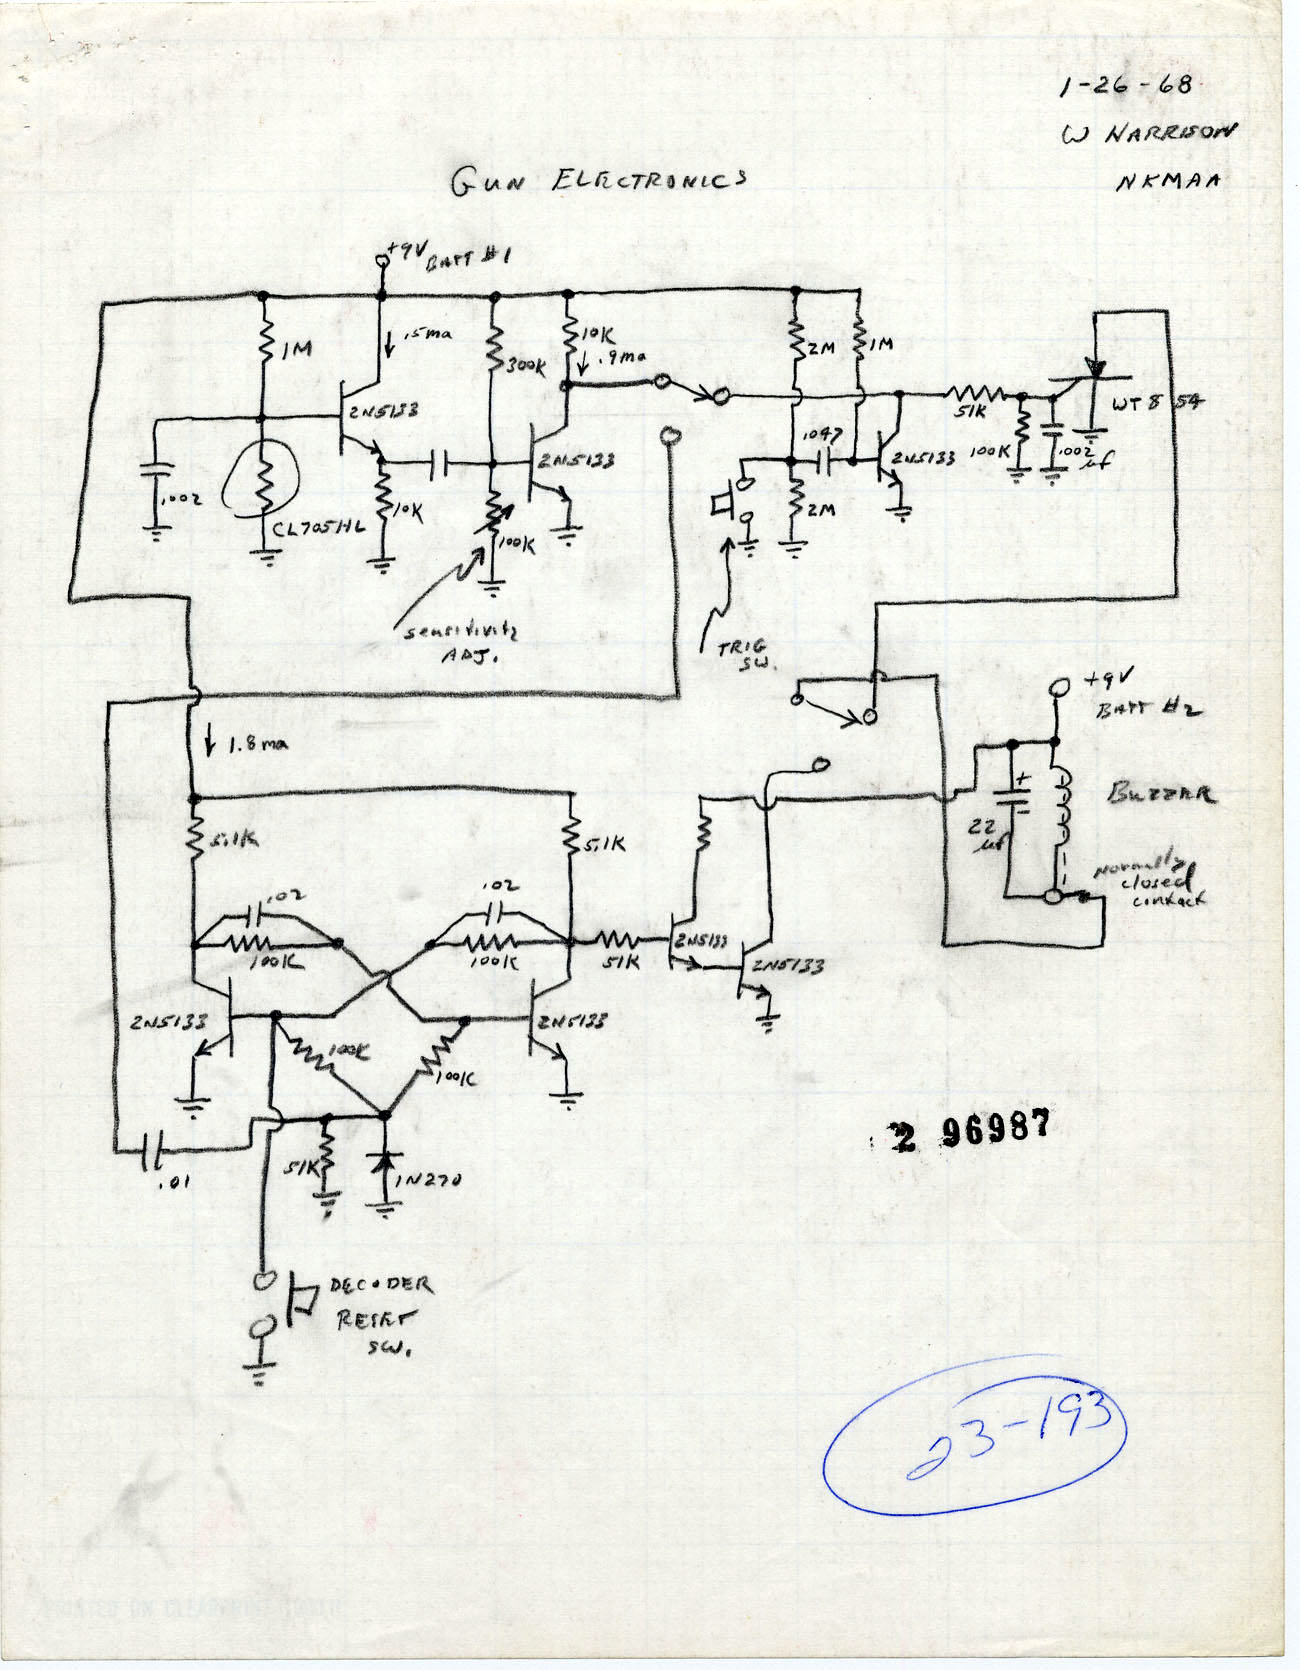 1-26-68
W HARRISON
NKMAA
GUN ELECTRONICS
+9V
BATT #1
1M
.5ma
300K
10K
.9ma
2M
1M
2N5133
51K
WT 8 54
.002
CL705HL
10K
2N5133
100K
.047
2N5133
100K
.002
µf
2M
sensitivity
ADJ.
TRIG
SW.
+9V
BATT #2
1.8ma
BUZZER
5.1K
5.1K
+
-
22
µf
Normally
closed
contact
.02
.02
100K
100K
51K
2N5133
2N5133
2N5133
2N5133
100K
100K
.01
51K
1N270
2 96987
DECODER
RESET
SW.
23-193
PRINTED ON CLEARPRINT